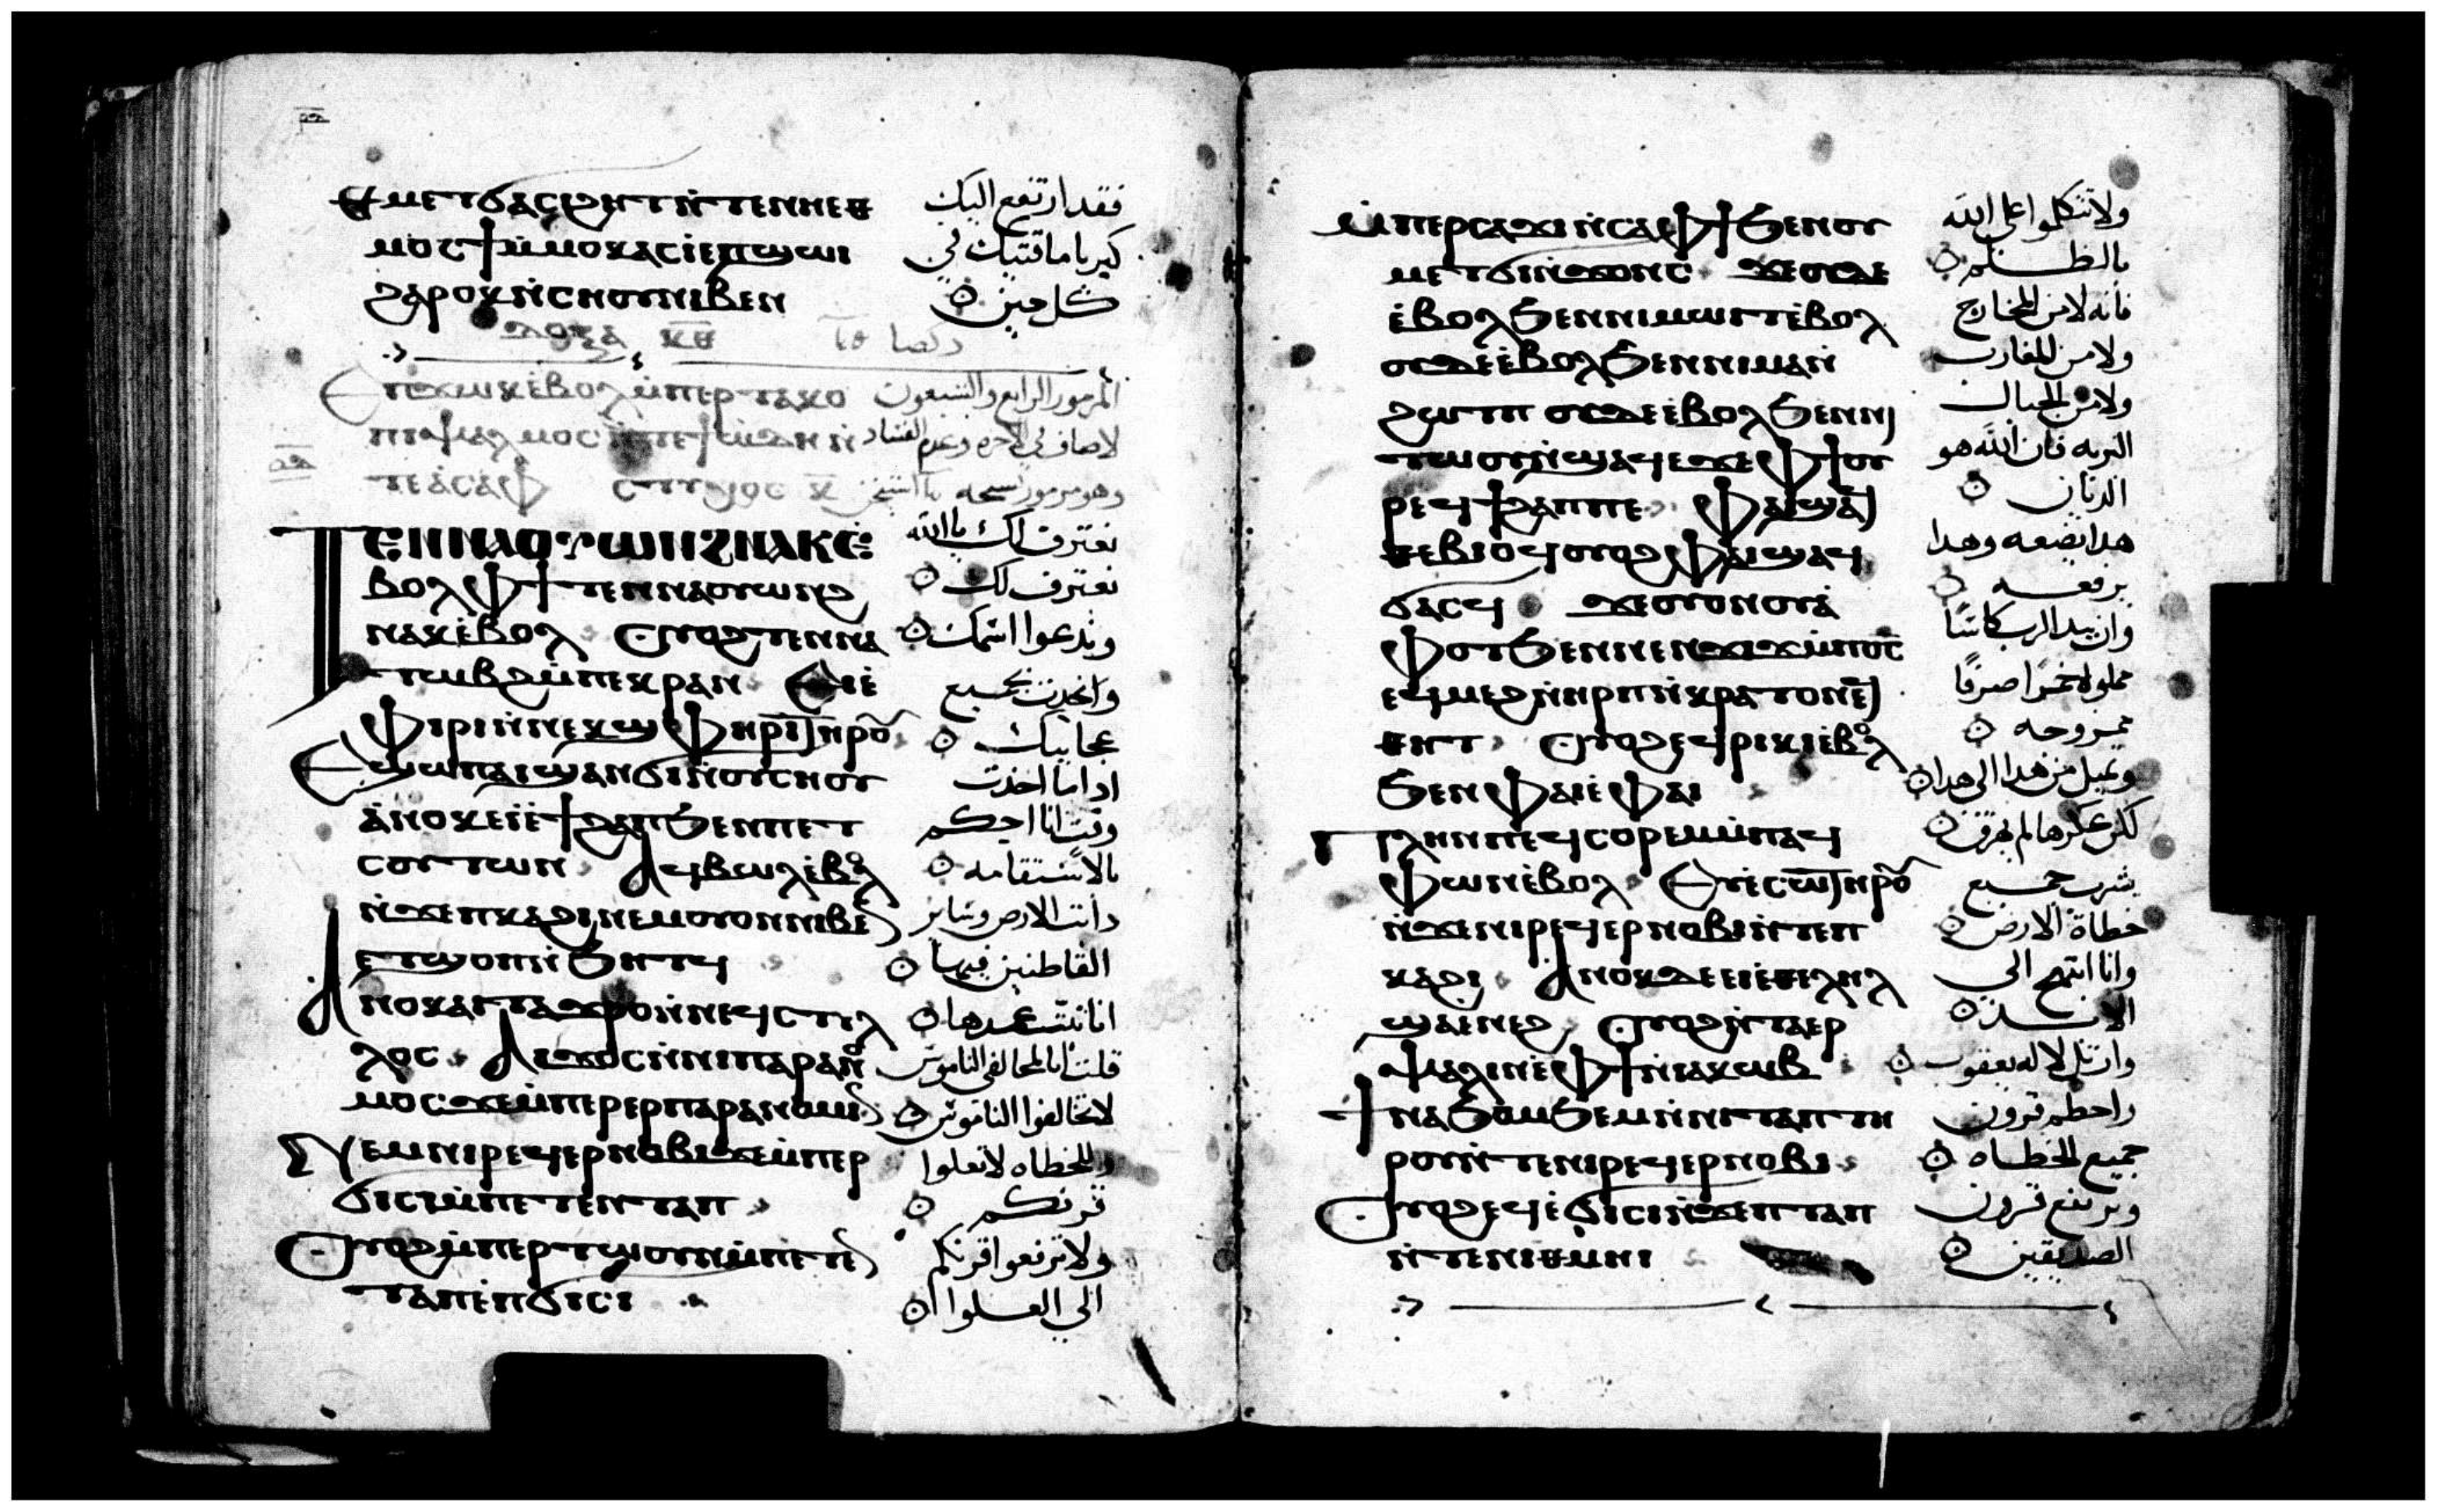 ϥⲙⲉⲧϭⲁⲥⲓϩⲏⲧ ⲛ̀ⲧⲉⲛⲏⲉⲑ فقد ارتفع اليك
ⲙⲟⲥϯ ⲙ̀ⲙⲟⲕ ⲁⲥⲓ ⲉ̀ⲡϣⲱⲓ كبريا ماقتيك في
ϩⲁⲣⲟⲕ ⲛ̀ⲥⲏⲟⲩ ⲛⲓⲃⲉⲛ كل حين
ⲉ̀ⲃⲟⲗ ⲙ̀ⲡⲉⲣⲧⲁⲕⲟ المزمور الرابع والسبعون
ⲛ̀ⲧⲉ ⲁ̀ⲥⲁⲫ
ⲧⲉⲛⲛⲁⲟⲩⲱⲛϩ ⲛⲁⲕ ⲉ̀ نعترف لك يا الله
ⲃⲟⲗ ⲫϯ ⲧⲉⲛⲛⲁⲟⲩⲱⲛϩ نعترف لك
ⲛⲁⲕ ⲉ̀ⲃⲟⲗ ⲟⲩⲟϩ ⲧⲉⲛⲛⲁ وندعوا اسمك
ⲧⲱⲃϩ ⲙ̀ⲡⲉⲕⲣⲁⲛ ⲉⲓⲉ̀ واتحدث بجميع
ⲫⲓⲣⲓ ⲛ̀ⲛⲉⲕϣⲫⲏⲣⲓ ⲧⲏⲣⲟⲩ عجايبك
ⲉϣⲱⲡ ⲁⲓϣⲁⲛϭⲓ ⲛ̀ⲟⲩⲥⲏⲟⲩ اذا ما اخذت
ⲁ̀ⲛⲟⲕ ⲉⲓⲉ̀ϯϩⲁⲡ ϧⲉⲛ ⲡⲉⲧ وقت انا احكم
ⲥⲟⲩⲧⲱⲛ ⲁϥⲃⲱⲗ ⲉ̀ⲃⲟⲗ بالاستقامه
ⲛ̀ϫⲉ ⲡⲕⲁϩⲓ ⲛⲉⲙ ⲟⲩⲟⲛ ⲛⲓⲃⲉⲛ ذابت الارض وساير
ⲉⲧϣⲟⲡ ⲛ̀ϧⲏⲧϥ القاطنين فيها
ⲁⲛⲟⲕ ⲁⲓⲧⲁϫⲣⲟ ⲛ̀ⲛⲉϥⲥⲧⲩⲗ
ⲗⲟⲥ ⲁⲓϫⲟⲥ ⲛ̀ⲛⲓⲡⲁⲣⲁⲛⲟ قلت
ⲙⲟⲥ ϫⲉ ⲙ̀ⲡⲉⲣⲉⲣⲡⲁⲣⲁⲛⲟⲙⲓⲛ لاتخالفوا الناموس
ⲛⲉⲙ ⲛⲓⲣⲉϥⲉⲣⲛⲟⲃⲓ ϫⲉ ⲙ̀ⲡⲉⲣ وللخطاه لاتعلوا
ϭⲓⲥⲓ ⲙ̀ⲡⲉⲧⲉⲛⲧⲁⲡ قرنكم
ⲟⲩⲟϩ ⲙ̀ⲡⲉⲣⲧⲱⲟⲩⲛ ⲙ̀ⲡⲉⲧⲉⲛ ولاترفعوا قرنكم
ⲧⲁⲡ ⲉ̀ⲡϭⲓⲥⲓ الي العلوا
ⲙ̀ⲡⲉⲣⲥⲁϫⲓ ⲛ̀ⲥⲁ ⲫϯ ϧⲉⲛ ⲟⲩ ولاتتكلموا على الله
ⲙⲉⲧϭⲓⲛ̀ϫⲟⲛⲥ ϫⲉ ⲟⲩⲇⲉ بالظلم
ⲉ̀ⲃⲟⲗ ϧⲉⲛ ⲛⲓⲙⲱⲓⲧ ⲉ̀ⲃⲟⲗ فانه لا من المخارج
ⲟⲩⲇⲉ ⲉ̀ⲃⲟⲗ ϧⲉⲛ ⲛⲓⲙⲁⲛ̀ ولا من المغارب
ϩⲱⲧⲡ ⲟⲩⲇⲉ ⲉ̀ⲃⲟⲗ ϧⲉⲛ ⲛⲓ ولا من الجبال
ⲧⲱⲟⲩ ⲛ̀ϣⲁϥⲉ ϫⲉ ⲫϯ ⲟⲩ البريه فان الله هو
ⲣⲉϥϯϩⲁⲡ ⲡⲉ ⲫⲁⲓ ϣⲁϥ الديان
ⲑⲉⲃⲓⲟϥ ⲟⲩⲟϩ ⲫⲁⲓ ϣⲁϥ هدا يضعه وهدا
ϭⲁⲥϥ ϫⲉ ⲟⲩⲟⲛ ⲟⲩⲁ̀ يرفعه
ⲫⲟⲧ ϧⲉⲛ ⲛⲉⲛϫⲓϫ ⲙ̀ⲡⲟ̅ⲥ̅ وان بيد الرب كاسًا
ⲉϥⲙⲉϩ ⲛ̀ⲏⲣⲡ ⲛ̀ⲕⲣⲁⲧⲟⲛ ⲉϥ مملوه خمرًا صرفًا
ⲑⲏⲧ ⲟⲩⲟϩ ⲉϥⲣⲓⲕⲓ ⲉ̀ⲃⲟⲗ ممزوجه
ϧⲉⲛ ⲫⲁⲓ ⲉ̀ ⲫⲁⲓ ويميل من هدا الى هدا
ⲡⲗⲏⲛ ⲡⲉϥⲥⲟⲣⲉⲙ ⲙ̀ⲡⲁϥ لكن عكرها لم يهرق
ⲫⲱⲛ ⲉ̀ⲃⲟⲗ ⲉⲩⲉ̀ⲥⲱ ⲧⲏⲣⲟⲩ يشرب جميع
ⲛ̀ϫⲉ ⲛⲓⲣⲉϥⲉⲣⲛⲟⲃⲓ ⲛ̀ⲧⲉ ⲡ خطاة الارض
ⲕⲁϩⲓ ⲁⲛⲟⲕ ⲇⲉ ⲉⲓⲉ̀ⲑⲉⲗⲏⲗ وانا ابتهج الي
ϣⲁ ⲉⲛⲉϩ ⲟⲩⲟϩ ⲛ̀ⲧⲁⲉⲣ الابد
ⲯⲁⲗⲓⲛ ⲉ̀ ⲫϯ ⲛ̀ⲓⲁⲕⲱⲃ وارتل لاله يعقوب
ϯⲛⲁϧⲟⲙϧⲉⲙ ⲛ̀ⲛⲓⲧⲁⲡ ⲧⲏ واحطم قرون
ⲣⲟⲩ ⲛ̀ⲧⲉ ⲛⲓⲣⲉϥⲉⲣⲛⲟⲃⲓ جميع الخطاه
ⲟⲩⲟϩ ⲉϥⲉ̀ϭⲓⲥⲓ ⲛ̀ϫⲉ ⲡⲧⲁⲡ وترتفع قرون
ⲛ̀ⲧⲉ ⲛⲓⲑⲙⲏⲓ الصديقين